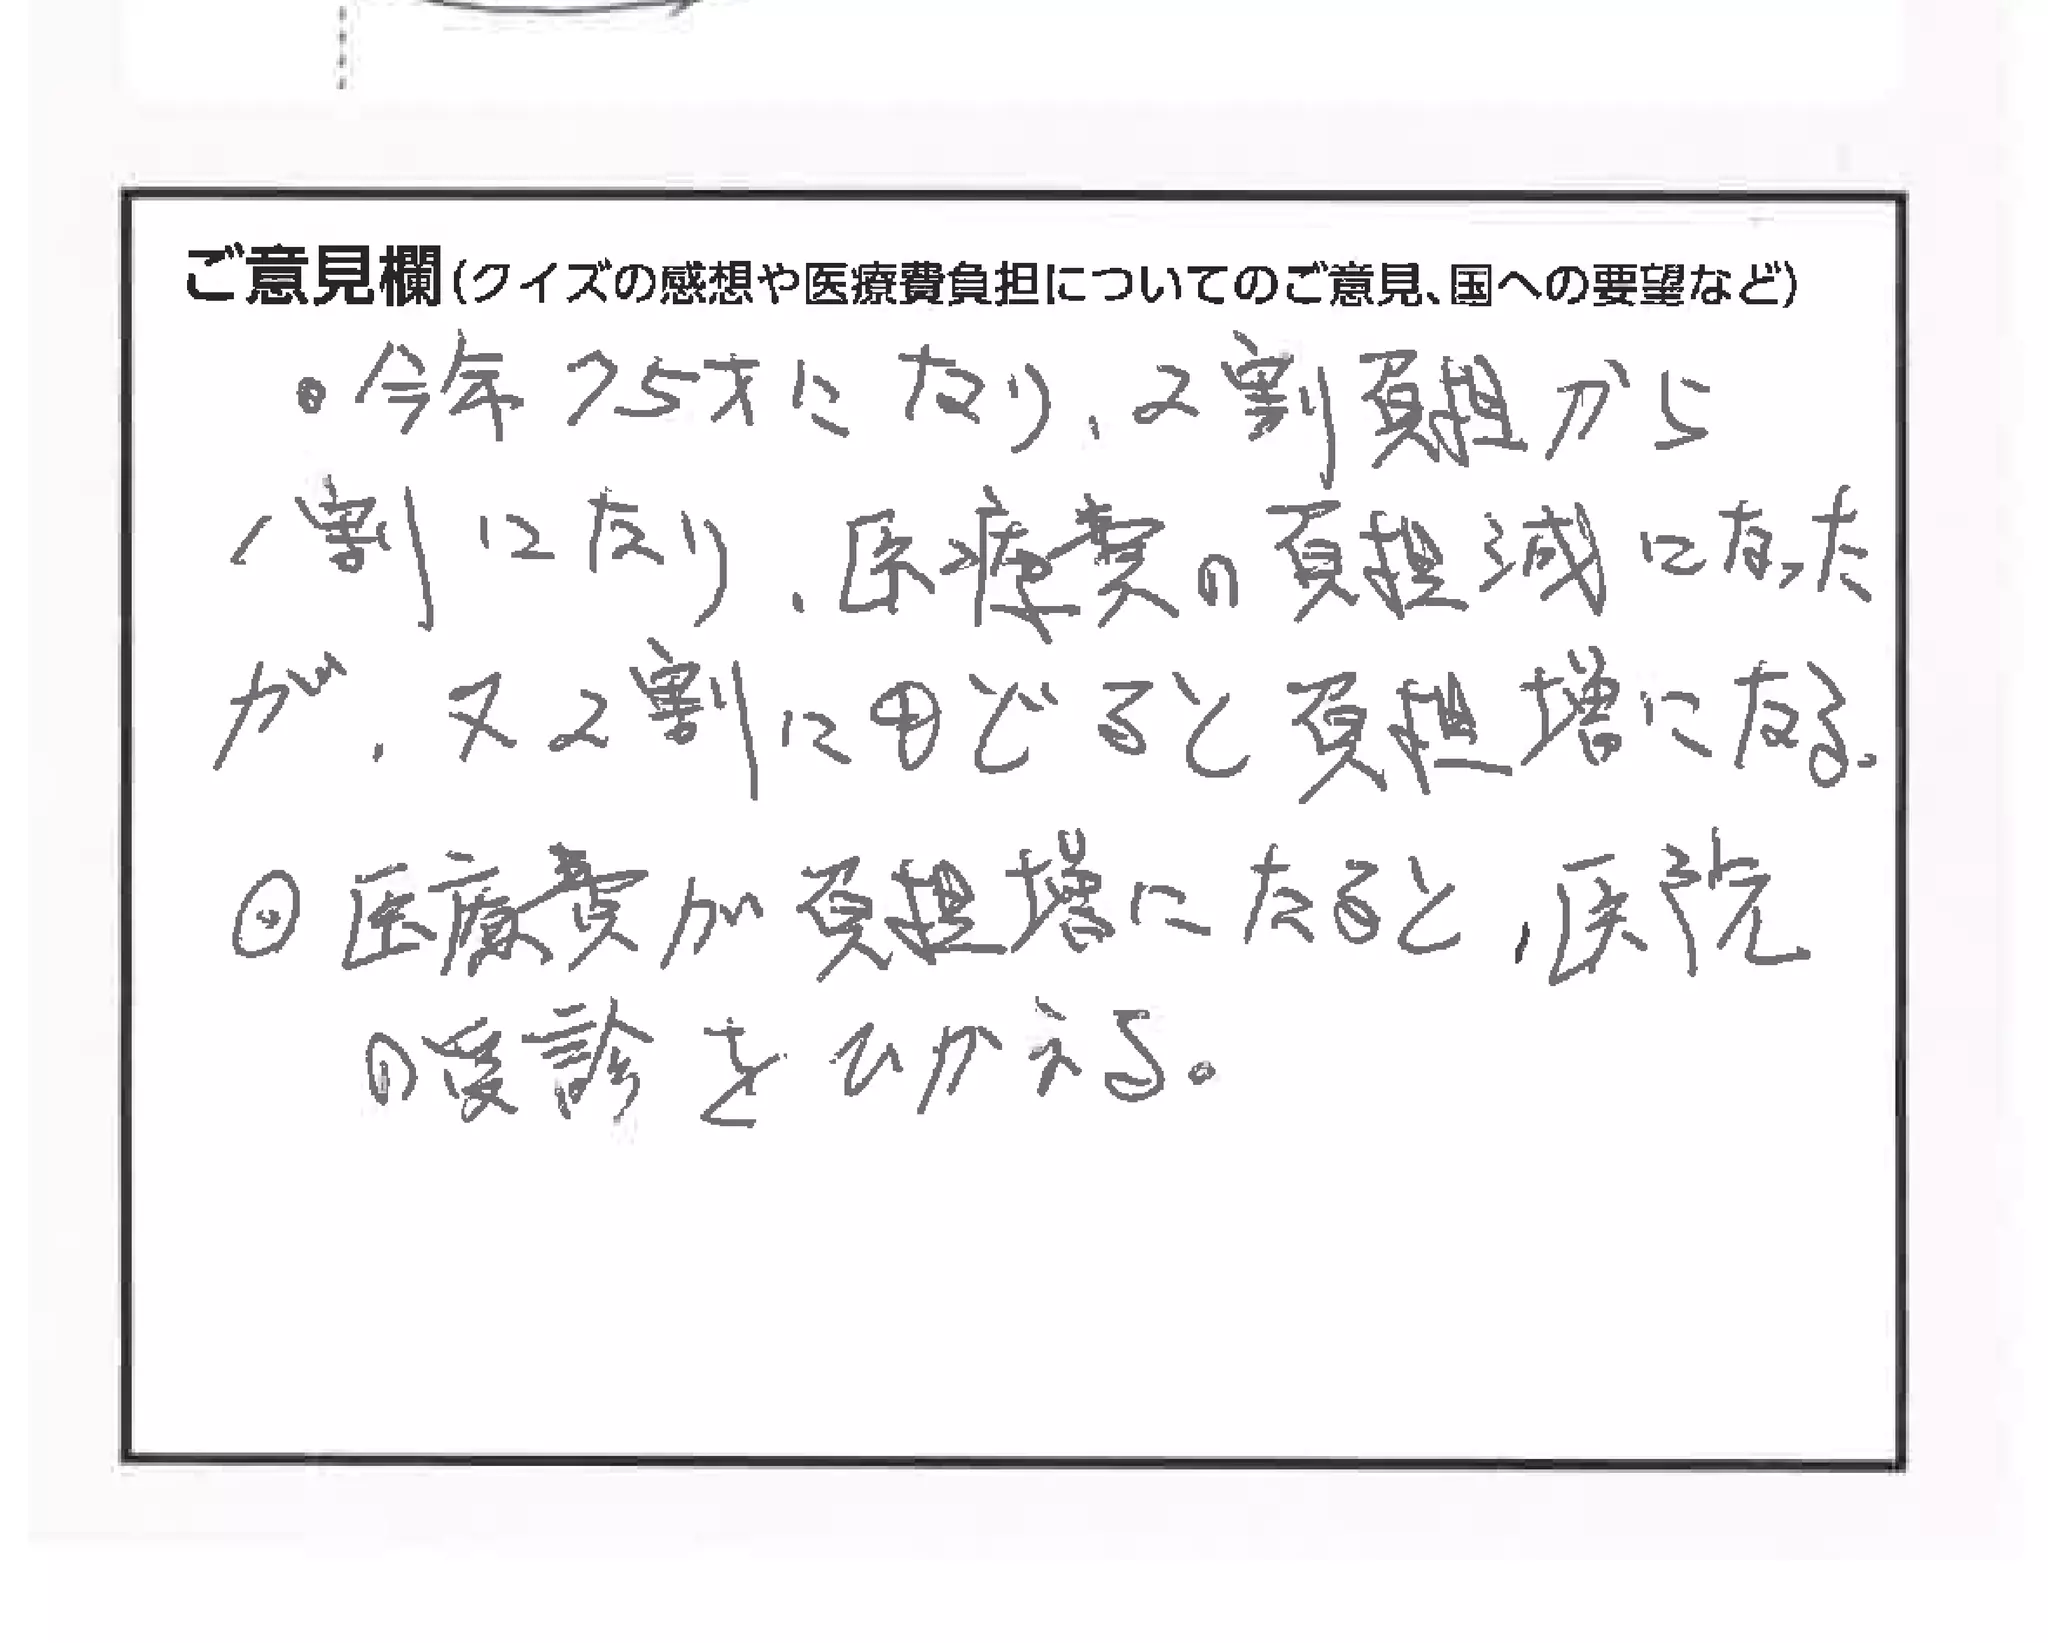 ご意見欄(クイズの感想や医療費負担についてのご意見、国への要望など)
・今年75才になり、2割負担から
1割になり、医療費の負担減になった
が、又2割にもどると負担増になる。
⊙医療費が負担増になると、医院
の受診をひかえる。